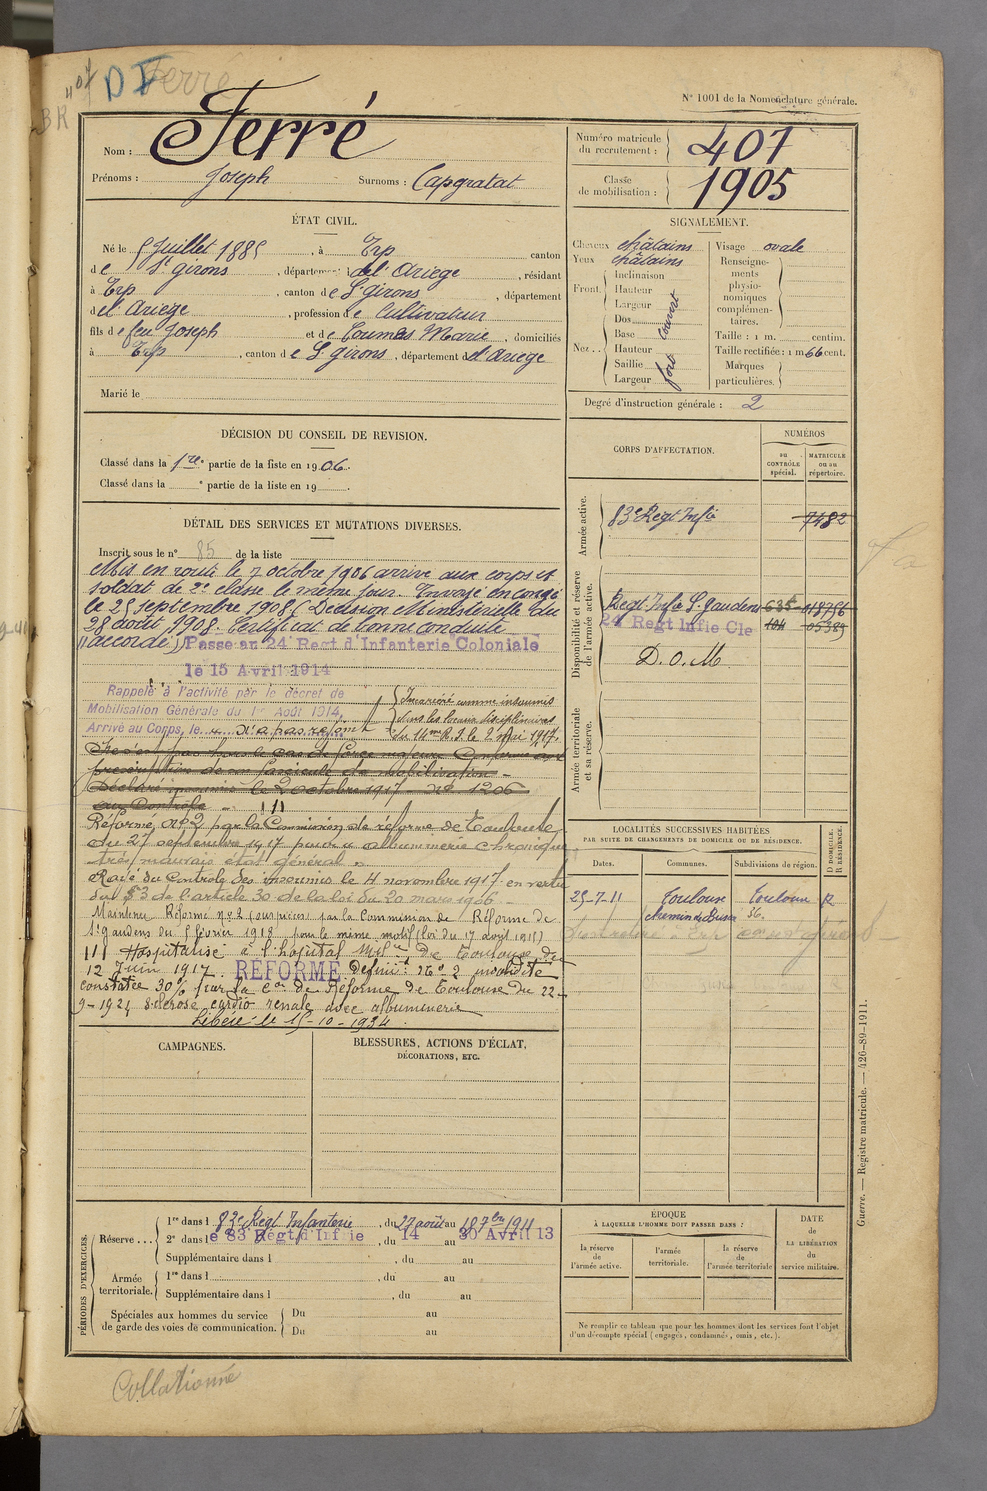 407
D F
Ferré
BR
N° 1001 de la Nomenclature générale.
Nom : Ferré
Prénoms : Joseph Surnoms : Capgratat
Numéro matricule du recrutement : 407
Classe de mobilisation : 1905
ÉTAT CIVIL.
Né le 5 Juillet 1885, à Erp canton
de St girons, département de l'Ariege, résidant
à Erp, canton de St girons, département
de l'Ariege, profession de Cultivateur
fils de feu Joseph et de Coumes Marie, domiciliés
à Erp, canton de St girons, département de l'Ariege
Marié le
SIGNALEMENT.
Cheveux châtains
Yeux châtains
Front
Inclinaison
Hauteur
Largeur
Nez
Dos
Base
Hauteur
Saillie
Largeur
couvert
fort
Visage ovale
Renseignements physionomiques complémentaires.
Taille : 1 m. centim.
Taille rectifiée : 1 m 66 cent.
Marques particulières.
Degré d'instruction générale : 2
DÉCISION DU CONSEIL DE REVISION.
Classé dans la 1re partie de la liste en 1906.
Classé dans la e partie de la liste en 19 .
DÉTAIL DES SERVICES ET MUTATIONS DIVERSES.
Inscrit sous le n° 85 de la liste
Mis en route le 7 octobre 1906 arrivé aux corps et
soldat de 2e classe le même jour. Envoyé en congé
le 25 septembre 1908. (Décision Ministérielle du
28 août 1908. Certificat de bonne conduite
"accordé") Passé au 24 Regt d'Infanterie Coloniale
le 15 Avril 1914
Rappelé à l'activité par le décret de
Mobilisation Générale du 1er Août 1914,
Arrivé au Corps, le " n'a pas rejoint
Incarcéré comme insoumis
dans les locaux disciplinaires
du 14me R. I. le 2 mai 1917.
prescriptions de son fascicule de mobilisation
Déclaré insoumis le 2 octobre 1917 - n° 1206
au Contrôle
Réformé n° 2 par la Commission de réforme de Toulouse
du 27 septembre 1917 pour " albuminerie chronique
très mauvais état général "
Rayé du Contrôle des insoumis le 4 novembre 1917 en vertu
du § 3 de l'article 30 de la loi du 20 mars 1906
Maintenu Réformé n° 2 (4 or pièces) par la Commission de Réforme de
St gaudens du 5 février 1918 pour le même motif (Loi du 17 août 1915)
Hospitalisé à l'hôpital Mre de Toulouse du
12 Juin 1917. RÉFORMÉ Définit. N° 2 invalidité
constatée 30% par la Con de Réforme de Toulouse du 22-
9-1921 Sclérose cardio rénale avec albuminerie
Libéré le 15-10-1934.
CORPS D'AFFECTATION.
NUMÉROS
au CONTRÔLE spécial.
MATRICULE ou au répertoire.
Armée active.
83e Regt Infie 7482
Disponibilité et réserve de l'armée active.
Regt Infie St gaudens 635 018756
24 Regt Infie Cle 104 05389
D. O. M.
Armée territoriale et sa réserve.
LOCALITÉS SUCCESSIVES HABITÉES
PAR SUITE DE CHANGEMENTS DE DOMICILE OU DE RÉSIDENCE.
Dates. Communes. Subdivisions de région. D DOMICILE. R RÉSIDENCE.
25-7-11 Toulouse Toulouse R
36.
CAMPAGNES.
BLESSURES, ACTIONS D'ÉCLAT, DÉCORATIONS, ETC.
PÉRIODES D'EXERCICES.
Réserve... 1re dans l 83e Regt Infanterie, du 27 août au 18 7bre 1911
2e dans le 83 Régt d'Inf ie, du 14 au 30 Avril 13
Supplémentaire dans l , du au
Armée territoriale. 1re dans l , du au
Supplémentaire dans l , du au
Spéciales aux hommes du service de garde des voies de communication. Du au
Du au
EPOQUE
À LAQUELLE L'HOMME DOIT PASSER DANS :
la réserve de l'armée active.
l'armée territoriale.
la réserve de l'armée territoriale
DATE DE LA LIBÉRATION du service militaire.
Ne remplir ce tableau que pour les hommes dont les services font l'objet
d'un décompte spécial (engagés, condamnés, omis, etc.).
Guerre. — Registre matricule. — 426-89-1911.
Collationné